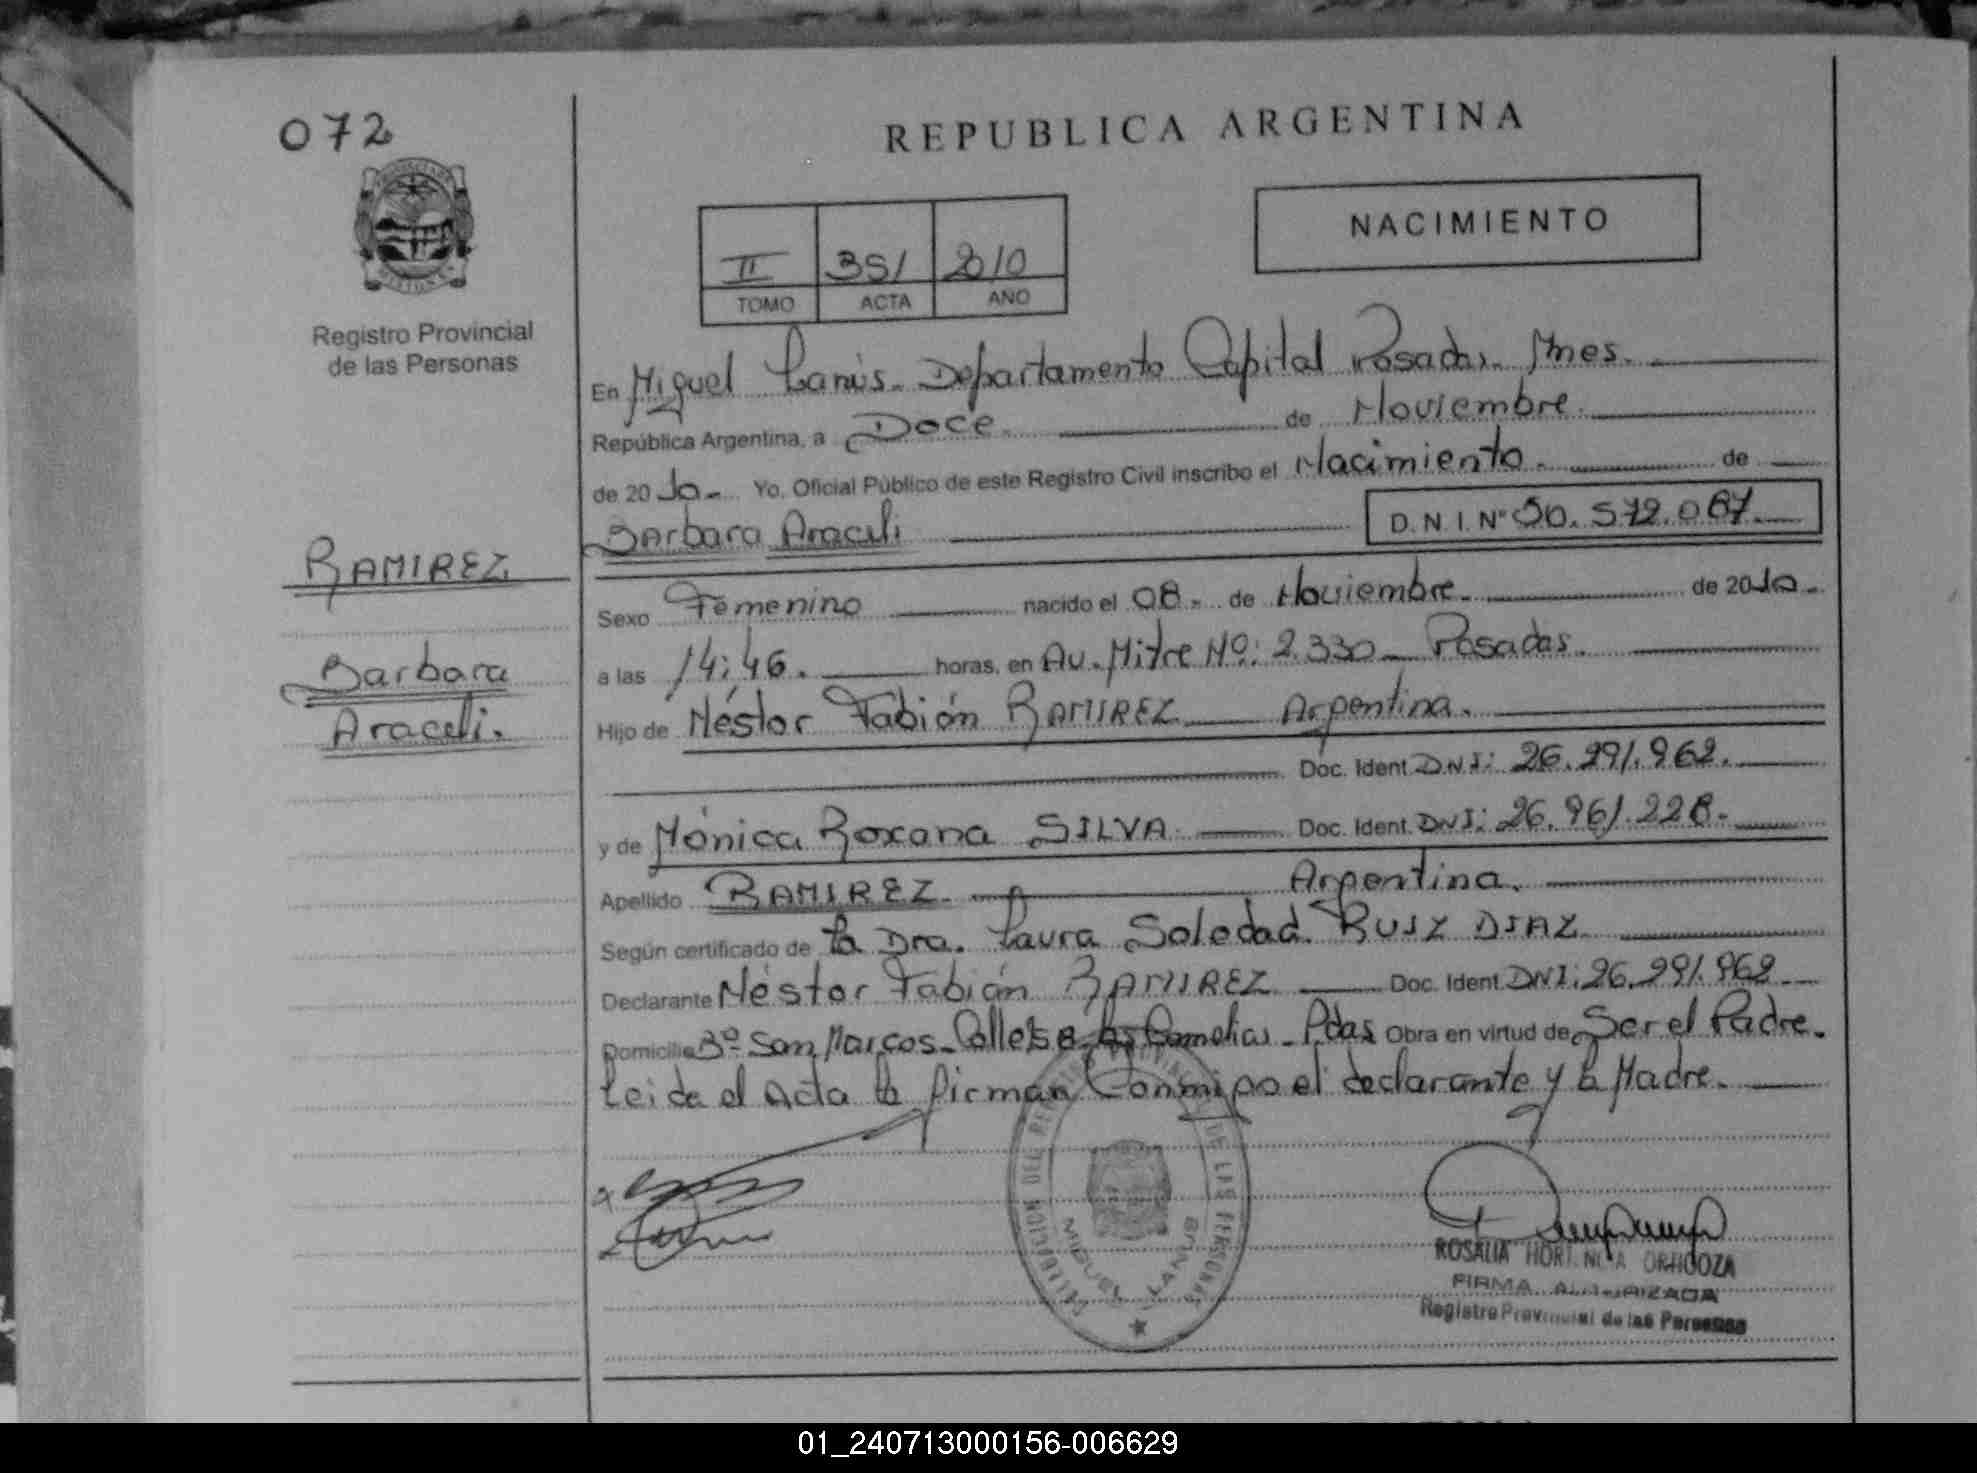 072
REPUBLICA ARGENTINA
NACIMIENTO
II 351 2010
TOMO ACTA AÑO
Registro Provincial
de las Personas
En Miguel Lanús. Departamento Capital Posadas. Mnes.
República Argentina, a Doce de Noviembre.
de 20 10. Yo, Oficial Público de este Registro Civil inscribo el Nacimiento. de
Barbara Araceli D.N.I. N° 50.572.067
RAMIREZ
Barbara
Araceli.
Sexo Femenino nacido el 08. de Noviembre. de 2010.
a las 14:46. horas, en Av. Mitre Nº: 2.330 Posadas.
Hijo de Néstor Fabián RAMIREZ Argentina.
Doc. Ident. DNI: 26.291.962.
y de Mónica Roxana SILVA Doc. Ident. DNI: 26.961.228.
Apellido RAMIREZ Argentina.
Según certificado de La Dra. Laura Soledad RUIZ DIAZ
Declarante Néstor Fabián RAMIREZ Doc. Ident. DNI: 26.291.962
Domicilio Bº San Marcos. Calle Las Camelias. Pdas Obra en virtud de Ser el Padre.
Leida el Acta la firman Conmigo el declarante y la Madre.
MIGUEL LANUS
ROSALIA ORTIGOZA
FIRMA AUTORIZADA
Registro Provincial de las Personas
01_240713000156-006629